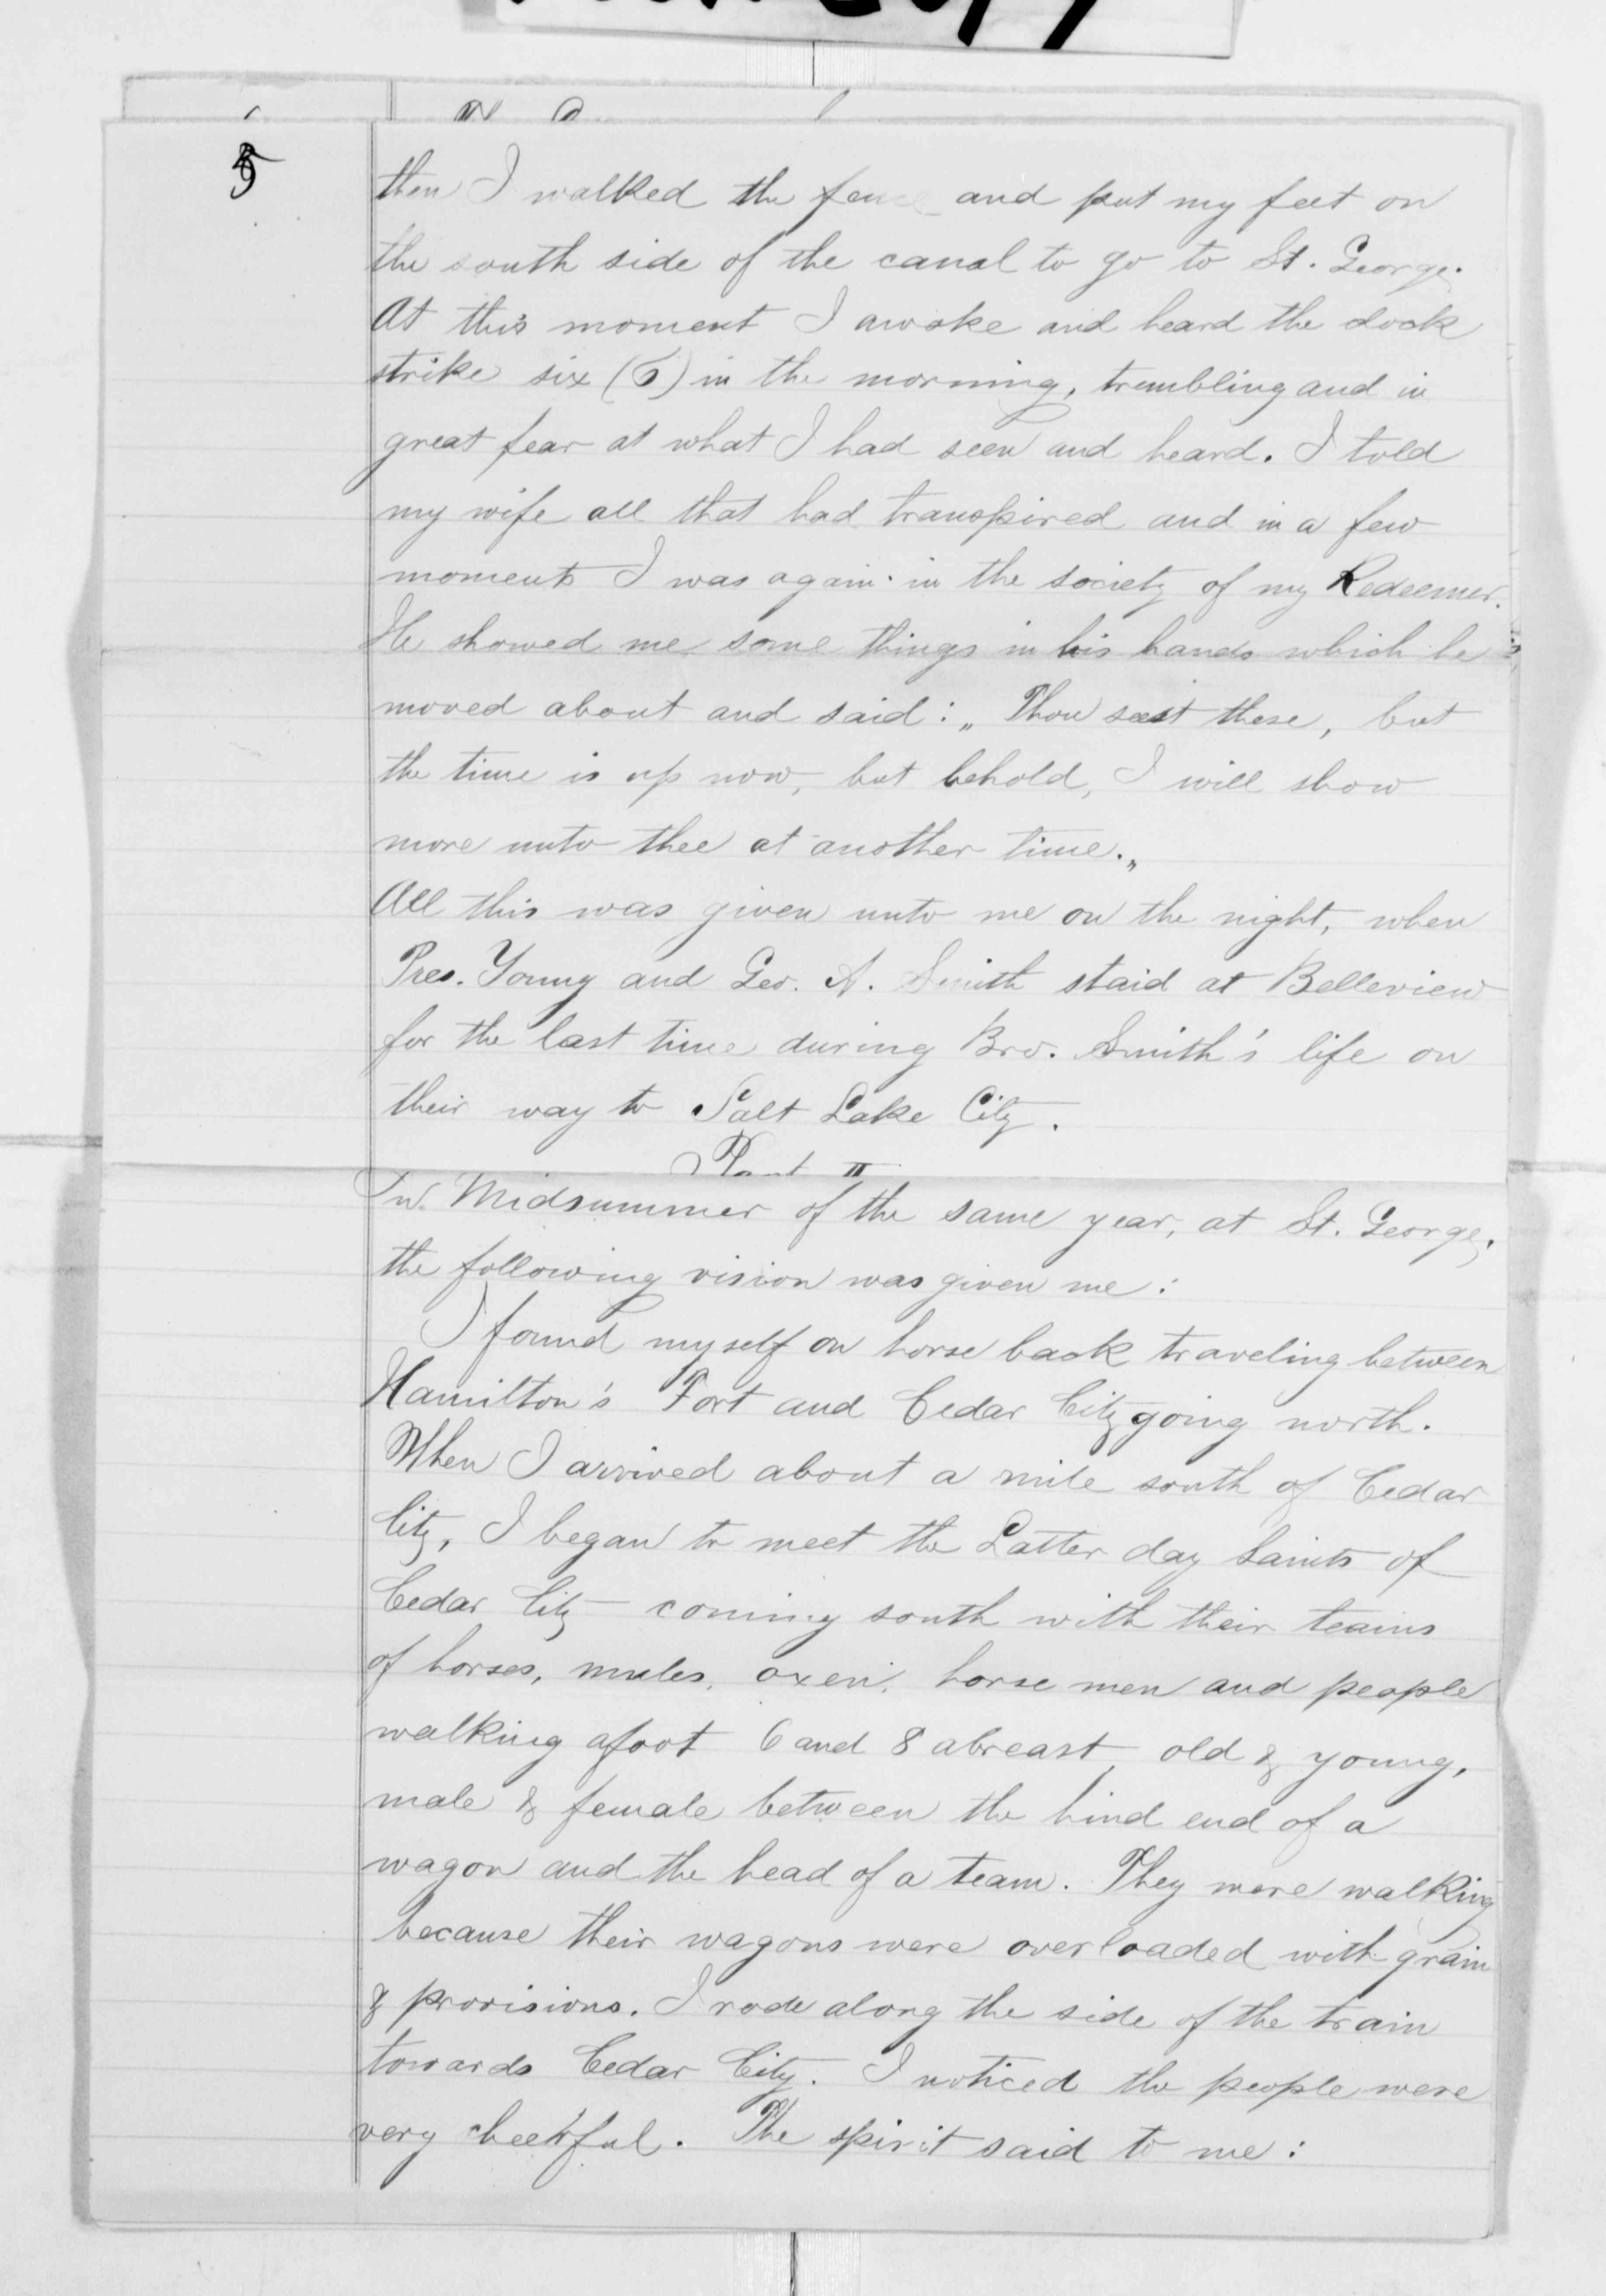 5
then I walked the fence and put my feet on
the south side of the canal to go to St. George.
At this moment I awoke and heard the clock
strike six (6) in the morning, trembling and in
great fear at what I had seen and heard. I told
my wife all that had transpired and in a few
moments I was again in the society of my Redeemer.
He showed me some things in his hands which he
moved about and said: „ Thou seest these, but
the time is up now, but behold, I will show
more unto thee at another time.„
All this was given unto me on the night, when
Pres. Young and Geo. A. Smith staid at Belleview
for the last time during Bro. Smith's life on
their way to Salt Lake City.
Part II
In Midsummer of the same year, at St. George,
the following vision was given me:
I found myself on horse back traveling between
Hamilton's Fort and Cedar City going north.
When I arrived about a mile south of Cedar
City, I began to meet the Latter day Saints of
Cedar City coming south with their teams
of horses, mules, oxen, horse men and people
walking afoot 6 and 8 abreast, old & young,
male & female between the hind end of a
wagon and the head of a team. They were walking
because their wagons were overloaded with grain
& provisions. I rode along the side of the train
towards Cedar City. I noticed the people were
very cheerful. The spirit said to me: